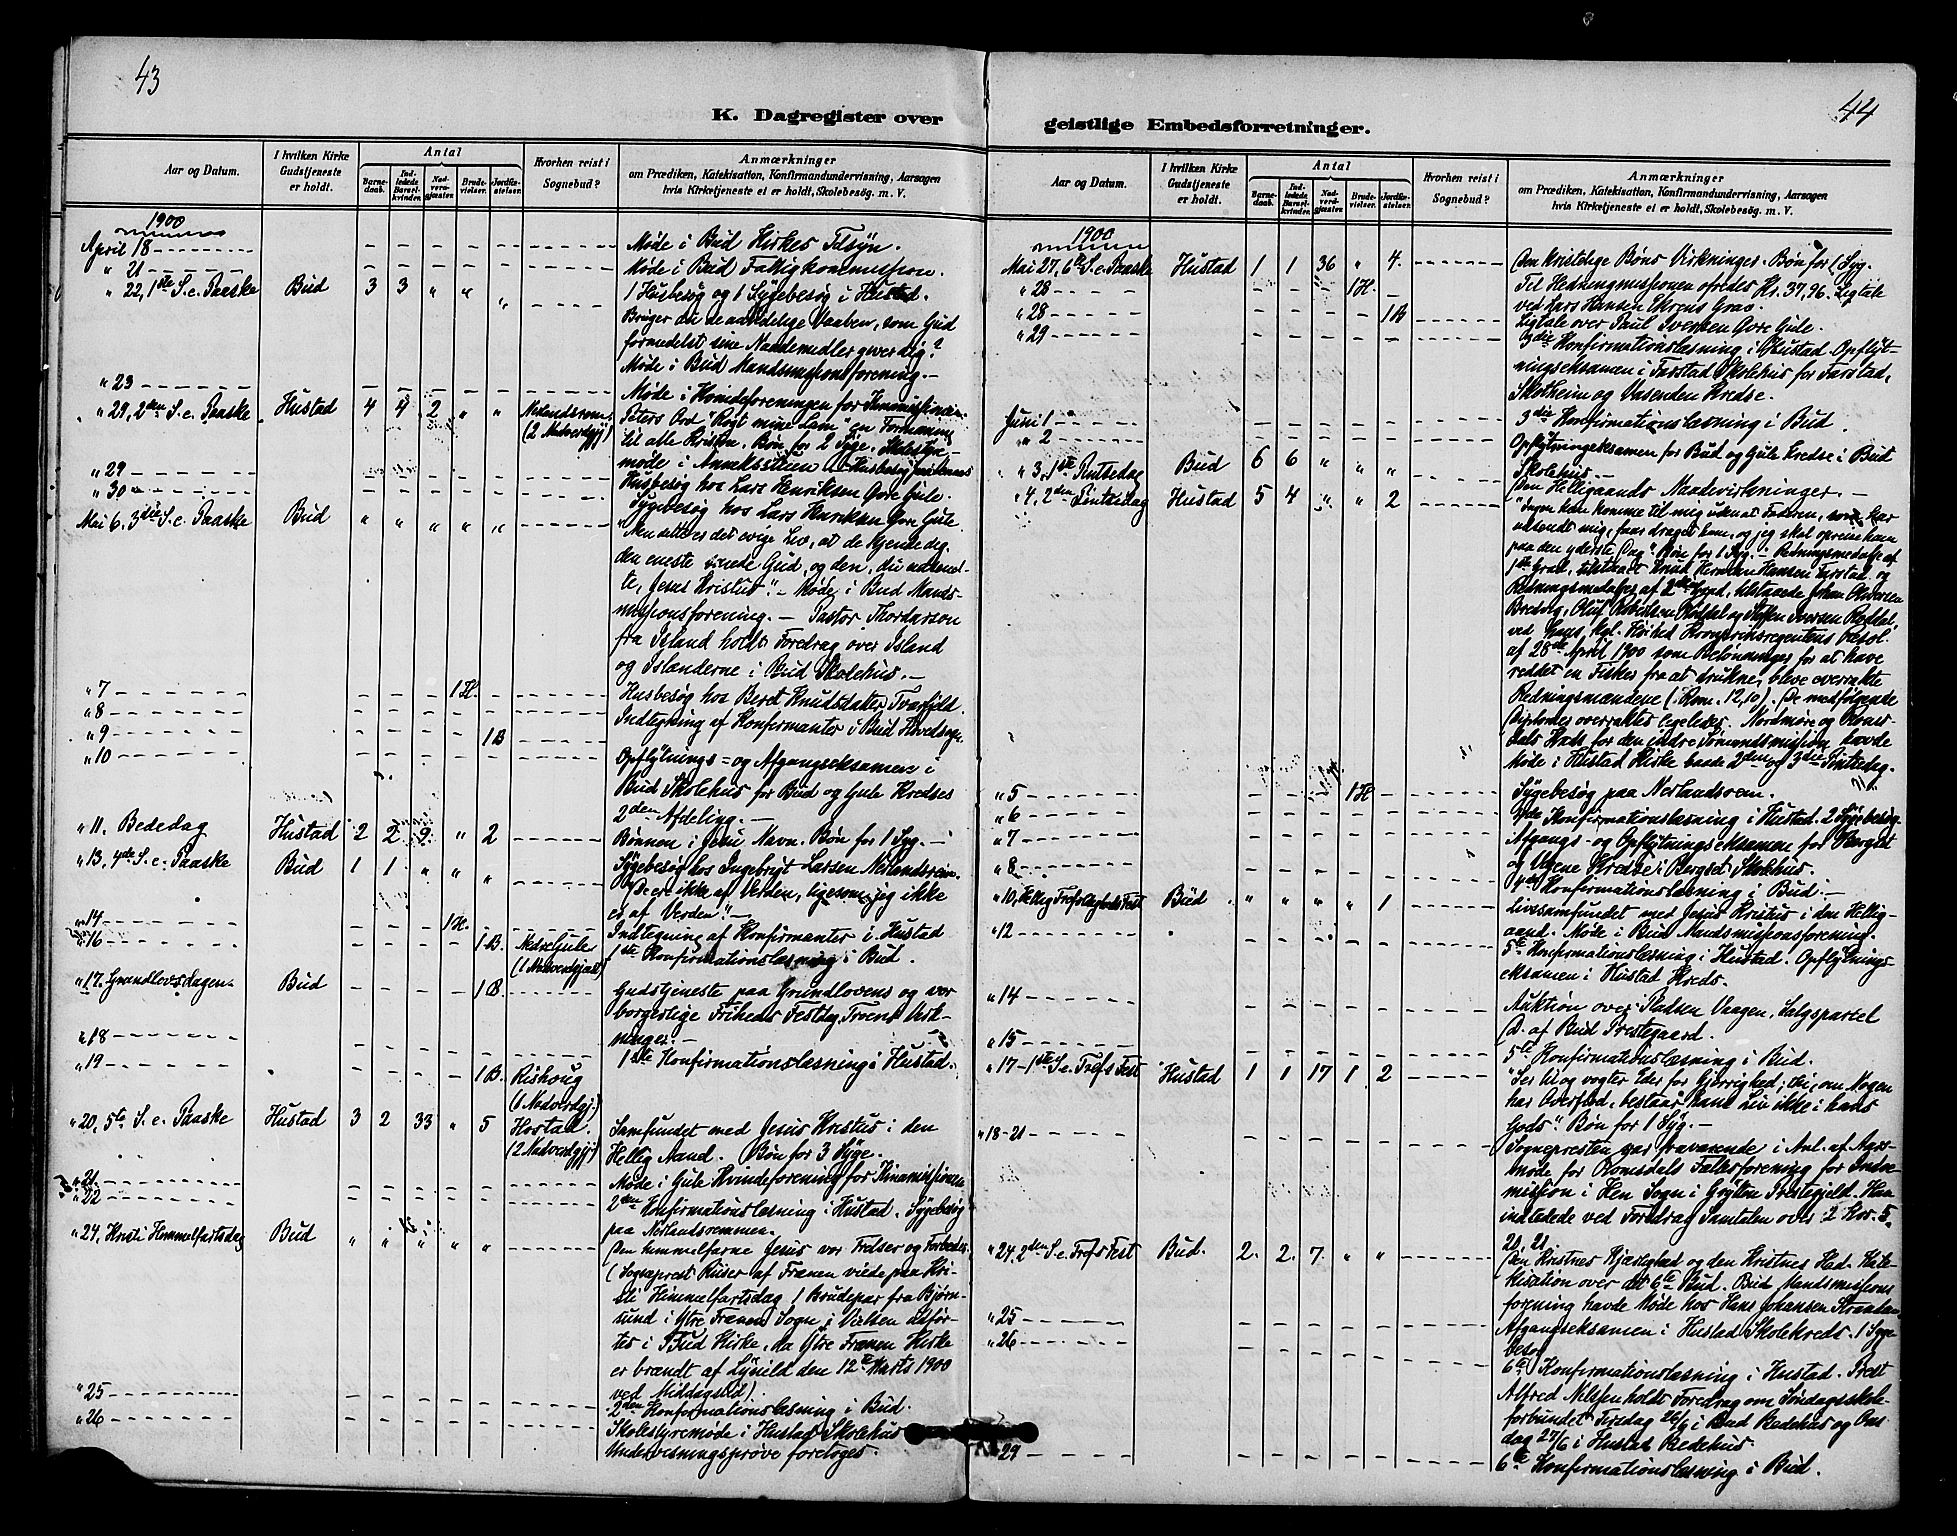 43
K. Dagregister over
Aar og Datum.
I hvilken Kirke Gudstjeneste er holdt.
Antal
Barnedaab.
Indledede Barselkvinder.
Nadveragjæster.
Brudevielser.
Jordfæstelser.
Hvorhen reist i Sognebud?
Anmærkninger
om Prædiken, Katekisation, Konfirmandundervisning, Aarsagen
hvis Kirketjeneste ei er holdt, Skolebesøg. m. V.
1900
April 18 Møde i Bud Kirkes Tilsyn.
" 21 Møde i Bud Fattigkommission.
" 22, 1ste S. e. Paaske Bud 3 3 " " " 1 Husbesøg og 1 Sygebesøg i Hustad.
Bruger du de aandelige Vaaben, som Gud
forundelst sine Naademidler giver dig?
Møde i Bud Mandsmissionsforening. –
" 23 Møde i Kvindeforeningen for
" 29, 2den S. e. Paaske Hustad 4 4 2 " " (2 Nadverdgj.) Peters Ord "Røgt mine Lam" en Formaning
til alle Kristne. Bøn for 2 Syge. Skolestyre-
" 29 møde i
" 30 Husbesøg hos Lars Henriksen Gore Gule.
Mai 6, 3die S. e. Paaske Bud " " " " " Sygebesøg hos Lars Henriksen Gore Gule.
"Men dette er det evige Liv, at de kjende dig,
den eneste sande Gud, og den, du udsend-
te, Jesus Kristus". – Møde i Bud Mands-
missionsforening. – Pastor Thordarson
fra Island holdt Foredrag over Island
og Islænderne i Bud Skolehus. –
" 7 1 H. Husbesøg hos Beret Knudsdatter Tvarfjeld.
" 8 Indtegning af Konfirmanter i Bud Hovedsogn.
" 9 1 B
" 10 Opflytnings- og Afgangseksamen i
Bud Skolehus for Bud og Gule Kredses
2den Afdeling. –
" 11. Bededag Hustad 2 2 9 " 2 Bønnen i Jesu Navn. Bøn for 1 Syg. –
" 13. 4de S. e. Paaske Bud 1 1 " " " Sygebesøg hos Ingebrigt Larsen Nerlandsrem.
"De ere ikke af Verden, ligesom jeg ikke
er af Verden". –
" 14 1 H. Indtegning af Konfirmanter i Hustad
" 16 1 B. Nedre Gule (1 Nadverdgjæst) 1ste Konfirmationslæsning i Bud.
" 17. Grundlovsdagen. Bud 1 B. Gudstjeneste paa Grundlovens og vor
borgerlige Friheds Festdag. Troens Virk-
" 18 ninger. –
" 19 1 B. Rishoug (1 Nadverdgj.) 1ste Konfirmationslæsning i Hustad.
" 20, 5te S. e. Paaske Hustad 3 2 33 " 5 Hostad. (2 Nadverdgj.) Samfundet med Jesus Kristus i den
Hellig Aand. Bøn for 3 Syge.
" 21 Møde i Gule Kvindeforening for Kinamissionen
" 22 2den Konfirmationslæsning i Hustad. Sygebesøg
paa Nerlandsremmen.
" 24, Kristi Himmelfartsdag Bud " " " " " Den himmelfarne Jesus vor Frelser og Forbeder.
(Sogneprest Riiser af Frænen viede paa Kri-
sti Himmelfartsdag 1 Brudepar fra Bjørn-
sund i Ytre Frænen Sogn i Vielsen udfør-
tes i Bud Kirke, da Ytre Frænen Kirke
er brændt af Lynild den 12te Marts 1900
ved Middagstid).
" 25 2den Konfirmationslæsning i Bud.
" 26 Skolestyremøde i Hustad Skolehus
Undervisningsprøve foretoges.
44
geistlige Embedsforretninger.
Aar og Datum.
I hvilken Kirke Gudstjeneste er holdt.
Antal
Barnedaab.
Indledede Barselkvinder.
Nadveragjæster.
Brudevielser.
Jordfæstelser.
Hvorhen reist i Sognebud?
Anmærkninger
om Prædiken, Katekisation, Konfirmandundervisning, Aarsagen
hvis Kirketjeneste ei er holdt, Skolebesøg. m. V.
1900
Mai 27, 6te S. e. Paaske Hustad 1 1 36 " 4. Den kristelige Bøns Virkninger. Bøn for 1 Syg.
" 28 1 H. Til Hedningmissionen ofredes Kr. 37,96. Ligtale
ved Lars Hansen Grav.
" 28 1 B Ligtale over Paul Iversen Gore Gule.
" 29 3die Konfirmationslæsning i Hustad. Opflyt-
ningseksamen i Farstad Skolehus for Farstad,
Skotheim og Vasenden Kredse.
Juni 1 3die Konfirmationslæsning i Bud.
" 2 Opflytningseksamen for Bud og Gule Kredse i Bud
" 3, 1ste Pintsedag Bud 6 6 " " " Skolehus. –
" 4, 2den Pintsedag Hustad 5 4 " " 2 Den Helligaands Naadevirkninger. –
"Ingen kan komme til mig uden at Faderen, som har
udsendt mig, faar draget ham, og jeg skal opreise ham
paa den yderste Dag" Bøn for 1 Syg. – Redningsmedalje af
1ste Grad, tilstaaet Knud Herman Hansen Farstad og
Redningsmedaljer af 2den Grad, tilstaaede Johan
Bredvig, Oluf og Steffen Iversen
ved Hans kgl. Høihed Kronprinsregentens Resol.
af 28de April 1900 som Belønninger for at have
reddet en Fisker fra at drukne, bleve overrakte
Redningsmændene (Rom. 12,10). De medfølgende
Diplomer overraktes ligeledes. Nordmøre og Roms-
dals Kreds for den indre Sømandsmission havde
Møde i Hustad Kirke baade 2den og 3die Pintsedag.
" 5 1 H Sygebesøg paa Nerlandsrem.
" 6 4de Konfirmationslæsning i Hustad. 2 Sygebesøg.
" 7 Afgangs- og Opflytningseksamen for Bergset
" 8 og Vevne Kredse i Bergset Skolehus.
4de Konfirmationslæsning i Bud. –
" 10, Hellig Trefoldigheds Fest Bud " " " " 1 Livssamfundet med Jesus Kristus i den Hellig-
" 12 aand. Møde i Bud Mandsmissionsforening.
5te Konfirmationslæsning i Hustad. Opflytnings-
eksamen i Hustad Kreds.
" 14 Auktion over Pladsen Vaagen, Salgsparcel
" 15 (D. af Bud Prestegaard.
5te Konfirmationslæsning i Bud.
" 17 – 1ste S. e. Tref's Fest Hustad 1 1 17 1 2 "Ser til og vogter Eder for Gjerrighed; thi, om Nogen
har Overflod, bestaar hans Liv ikke i hans
Gods". Bøn for 1 Syg. –
" 18-21 Sognepresten var fraværende i Anl. af Aars-
møde for Romsdals Fællesforening for Indre-
mission i Hen Sogn i Grytten Prestegjeld. Han
indledede ved Foredrag Samtalen over 2 Kor. 5.
20, 21.
" 24, 2den S. e. Tref's Fest Bud. 2. 2. 7. " " Den Kristnes Kjærlighed og den Kristnes Had. Kate-
kisation over det 6te Bud. Bud Mandsmissions
forening havde Møde hos Hans Johansen
" 25 Afgangseksamen i Hustad Skolekreds. 1 Syge
" 26 besøg
6te Konfirmationslæsning i Hustad. Prest
Alfred Nilssen holdt Foredrag om Søndagsskole-
forbundet Tirsdag 26/6 i Bud Bedehus og Ons
dag 27/6 i Hustad Bedehus.
" 29 6te Konfirmationslæsning i Bud.